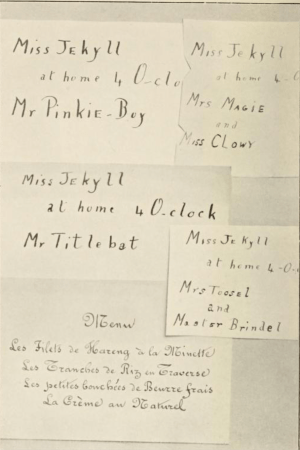 Miss Jekyll
at home 4 O-clo
Mr Pinkie-Boy
Miss Jekyll
at home 4-O
Mrs Magie
and
Miss Clowy
Miss Jekyll
at home 4 O-clock
Mr Titlebat
Miss Jekyll
at home 4-O-
Mrs Toosel
and
Master Brindel
Menu
Les Filets de Hareng à la Minette
Les Tranches de Riz en Traverse
Les petites bouchées de Beurre frais
La Crème au Naturel